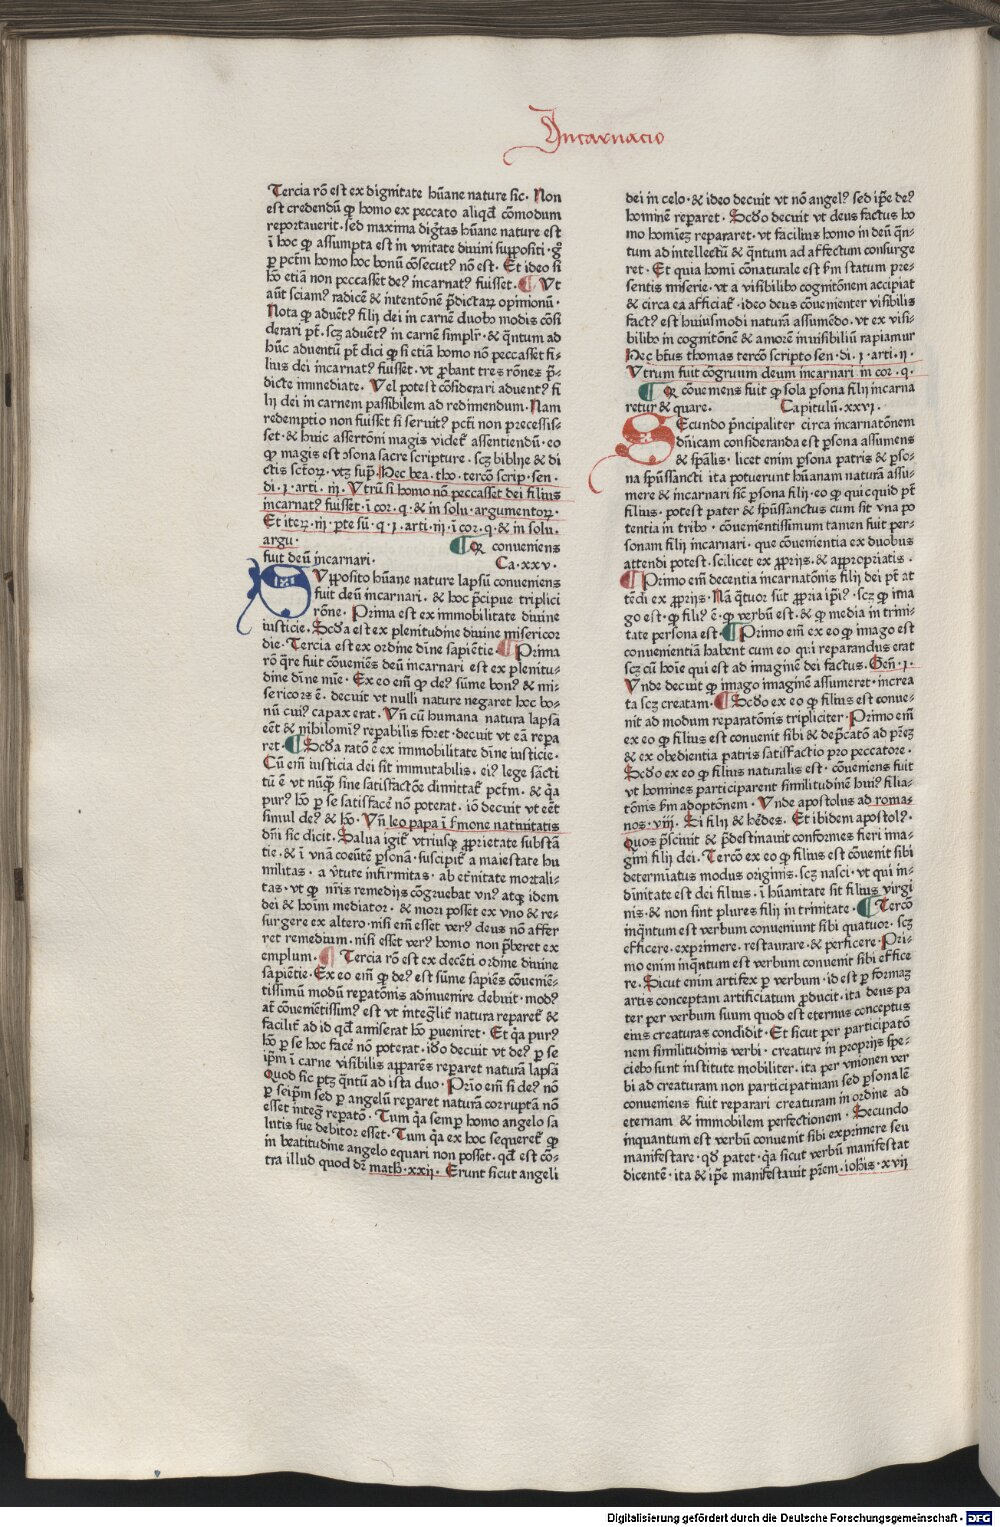 Incarnacio
Tercia rõ est ex dignitate hũane nature sic. Non
est credendũ ꝙ homo ex peccato aliqđ cõmodum
reportauerit. sed maxima digtas hũane nature est
ĩ hoc ꝙ assumpta est in vnitate diuini suppositi. gꝰ
ꝑ pctm̃ homo hoc bonũ cõsecutꝰ nõ est. Et ideo si
hõ etiã non peccasset deꝰ incarnatꝰ fuisset. ¶ Vt
aũt sciamꝰ radicẽ & intentõnẽ p̃dictaꝝ opinionũ.
Nota ꝙ aduẽtꝰ filij dei in carnẽ duobꝰ modis cõsi
derari pt̃. scꝫ aduẽtꝰ in carnẽ simplr̃. & q̃ntum ad
hũc aduentũ pt̃ dici ꝙ si etiã homo nõ peccasset fi⸗
lius dei incarnatꝰ fuisset. vt ꝓbant tres rõnes p̃⸗
dicte immediate. Vel potest cõsiderari aduentꝰ fi
lij dei in carnem passibilem ad redimendum. Nam
redemptio non fuisset si seruitꝰ pcti non precessis⸗
set. & huic assertõni magis videt᷑ assentiendũ. eo
ꝙ magis est ↄsona sacre scripture. scꝫ biblije & di
ctis sctõꝝ. vtꝫ supꝰ. Hec bea. tho. tercõ scrip. sen.
di. 1. arti. iij. Vtrũ si homo nõ peccasset dei filius
incarnatꝰ fuisset. ĩ cor. q. & in solu. argumentoꝝ.
Et iteꝝ. iij. ꝑte sũ. q. 1. arti. iij. ĩ cor. q. & in solu.
argu.
¶ Ꝙ conueniens
fuit deũ incarnari.
Ca. xxv.
SVpposito hũane nature lapsũ conueniens
fuit deũ incarnari. & hoc p̃cipue triplici
rõne. Prima est ex immobilitate diuine
iusticie. Scđa est ex plenitudine diuine misericor
die. Tercia est ex ordine dĩne sapiẽtie. ¶ Prima
rõ q̃re fuit cõueniẽs deũ incarnari est ex plenitu⸗
dine dĩne mĩe. Ex eo em̃ ꝙ deꝰ sũme bonꝰ & mi⸗
sericors ẽ. decuit vt nulli nature negaret hoc bo⸗
nũ cuiꝰ capax erat. Vñ cũ humana natura lapsa
eẽt & nihilominꝰ reꝑabilis foret. decuit vt eã repa
ret. ¶ Scđa ratõ ẽ ex immobilitate dĩne iusticie.
Cũ em̃ iusticia dei sit immutabilis. eiꝰ lege sãcti
tũ ẽ vt nũꝗ̃ sine satisfactõe dimittat᷑ pctm̃. & q̃a
purꝰ hõ ꝑ se satisfacẽ nõ poterat. iõ decuit vt eẽt
simul deꝰ & hõ. Vñ leo papa ĩ sermone natiuitatis
dñi sic dicit. Salua igit᷑ vtriusꝗ ꝓprietate substã
tie. & ĩ vnã coeũte ꝑsonã. suscipit᷑ a maiestate hu
militas. a v̓tute infirmitas. ab et̓nitate mortali⸗
tas. vt ꝙ nr̃is remedijs cõgruebat vnꝰ atꝗ idem
dei & hoĩm mediator. & mori posset ex vno & re⸗
surgere ex altero. nisi em̃ esset verꝰ deus nõ affer
ret remedium. nisi esset verꝰ homo non p̃beret ex
emplum. ¶ Tercia rõ est ex decẽti ordine diuine
sapiẽtie. Ex eo em̃ ꝙ deꝰ est sũme sapiẽs cõueniẽ⸗
tissimũ modũ reꝑatõnis adinuenire debuit. modꝰ
at̃ cõuenẽtissimꝰ est vt integ̃lit᷑ natura reparet᷑ &
facilit᷑ ad id qđ amiserat hõ ꝑueniret. Et q̃a purꝰ
hõ ꝑ se hoc facẽ nõ poterat. iđo decuit vt deꝰ ꝑ se
ip̃m ĩ carne visibilis apparẽs reꝑaret naturã lapsã
Quod sic ptꝫ q̃ntũ ad ista duo. Prĩo em̃ si deꝰ nõ
ꝑ seip̃m sed ꝑ angelũ reꝑaret naturã corruptã nõ
esset integ̃ reꝑatõ. Tum q̃a semꝑ homo angelo sa
lutis sue debitor esset. Tum q̃a ex hoc sequeret᷑ ꝙ
in beatitudine angelo equari non posset. qđ est cõ⸗
tra illud quod dr̃ math̃. xxij. Erunt sicut angeli
dei in celo. & ideo decuit vt nõ angelꝰ sed ip̃e deꝰ
hominẽ reꝑaret. Scđo decuit vt deus factus ho
mo homiẽꝫ repararet. vt facilius homo in deũ q̃n⸗
tum ad intellectũ & q̃ntum ad affectum consurge
ret. Et quia homĩ cõnaturale est s̃m statum pre⸗
sentis miserie. vt a visibilibꝰ cognitõnem accipiat
& circa ea afficiat᷑. ideo deus cõuenienter visibilis
factꝰ est huiusmodi naturã assumẽdo. vt ex visi⸗
bilibꝰ in cognitõnẽ & amorẽ inuisibiliũ rapiamur
Hec btũs thomas tercõ scripto sen. di. 1. arti. ij.
Vtrum fuit cõgruum deum incarnari in cor. q.
¶ Ꝙ cõueniens fuit ꝙ sola ꝑsona filij incarna
retur & quare. Capitulũ. xxvi.
SEcundo p̃ncipaliter circa incarnatõnem
dñicam consideranda est ꝑsona assumens
& sp̃alis. licet enim ꝑsona patris & ꝑso⸗
na sp̃ũssancti ita potuerunt hũanam naturã assu⸗
mere & incarnari sic̃ ꝑsona filij. eo ꝙ quicquid pt̃
filius. potest pater & sp̃ũssanctus cum sit vna po
tentia in tribꝰ. cõuenientissimum tamen fuit per⸗
sonam filij incarnari. que cõuenientia ex duobus
attendi potest. scilicet ex ꝓprijs. & appropriatis.
¶ Primo em̃ decentia incarnatõnis filij dei pt̃ at
tẽdi ex ꝓprijs. Nã q̃tuor sũt ꝓpria ip̃iꝰ. scꝫ ꝙ ima
go est. ꝙ filiꝰ ẽ. ꝙ verbũ est. & ꝙ media in trini⸗
tate persona est. ¶ Primo em̃ ex eo ꝙ imago est
conuenientiã habent cum eo qui reparandus erat
scꝫ cũ hoĩe qui est ad imaginẽ dei factus. Geñ. 1.
Vnde decuit ꝙ imago imaginẽ assumeret. increa
ta scꝫ creatam. ¶ Scđo ex eo ꝙ filius est conue⸗
nit ad modum reparatõnis tripliciter. Primo em̃
ex eo ꝙ filius est conuenit sibi & dep̃catõ ad pr̃eꝫ
& ex obedientia patris satisfactio pro peccatore.
Scđo ex eo ꝙ filius naturalis est. cõueniens fuit
vt homines participarent similitudinẽ huiꝰ filia⸗
tõnis s̃m adoptõnem. Vnde apostolus ad roma⸗
nos. viij. Si filij & hẽdes. Et ibidem apostolꝰ.
Quos p̃sciuit & p̃destinauit conformes fieri ima⸗
gini filij dei. Tercõ ex eo ꝙ filius est cõuenit sibi
determiatus modus originis. scꝫ nasci. vt qui in⸗
diuinitate est dei filius. ĩ hũanitate sit filius virgi
nis. & non sint plures filij in trinitate. ¶ Tercõ
inq̃ntum est verbum conueniunt sibi quatuor. scꝫ
efficere. exprimere. restaurare. & perficere. Pri⸗
mo enim inq̃ntum est verbum conuenit sibi effice
re. Sicut enim artifex ꝑ verbum. id est ꝑ formaꝫ
artis conceptam artificiatum ꝓducit. ita deus pa
ter per verbum suum quod est eternus conceptus
eius creaturas condidit. Et sicut per participatõ
nem similitudinis verbi. creature in proprijs spe⸗
ciebꝰ sunt institute mobiliter. ita per vnionem ver
bi ad creaturam non participatiuam sed ꝑsonalẽ
conueniens fuit reparari creaturam in ordine ad
eternam & immobilem perfectionem. Secundo
inquantum est verbũ conuenit sibi exprimere seu
manifestare. qđ patet. q̃a sicut verbũ manifestat
dicentẽ. ita & ip̃e manifestauit pr̃em. ioh̃is. xvij
Digitalisierung gefördert durch die Deutsche Forschungsgemeinschaft - DFG